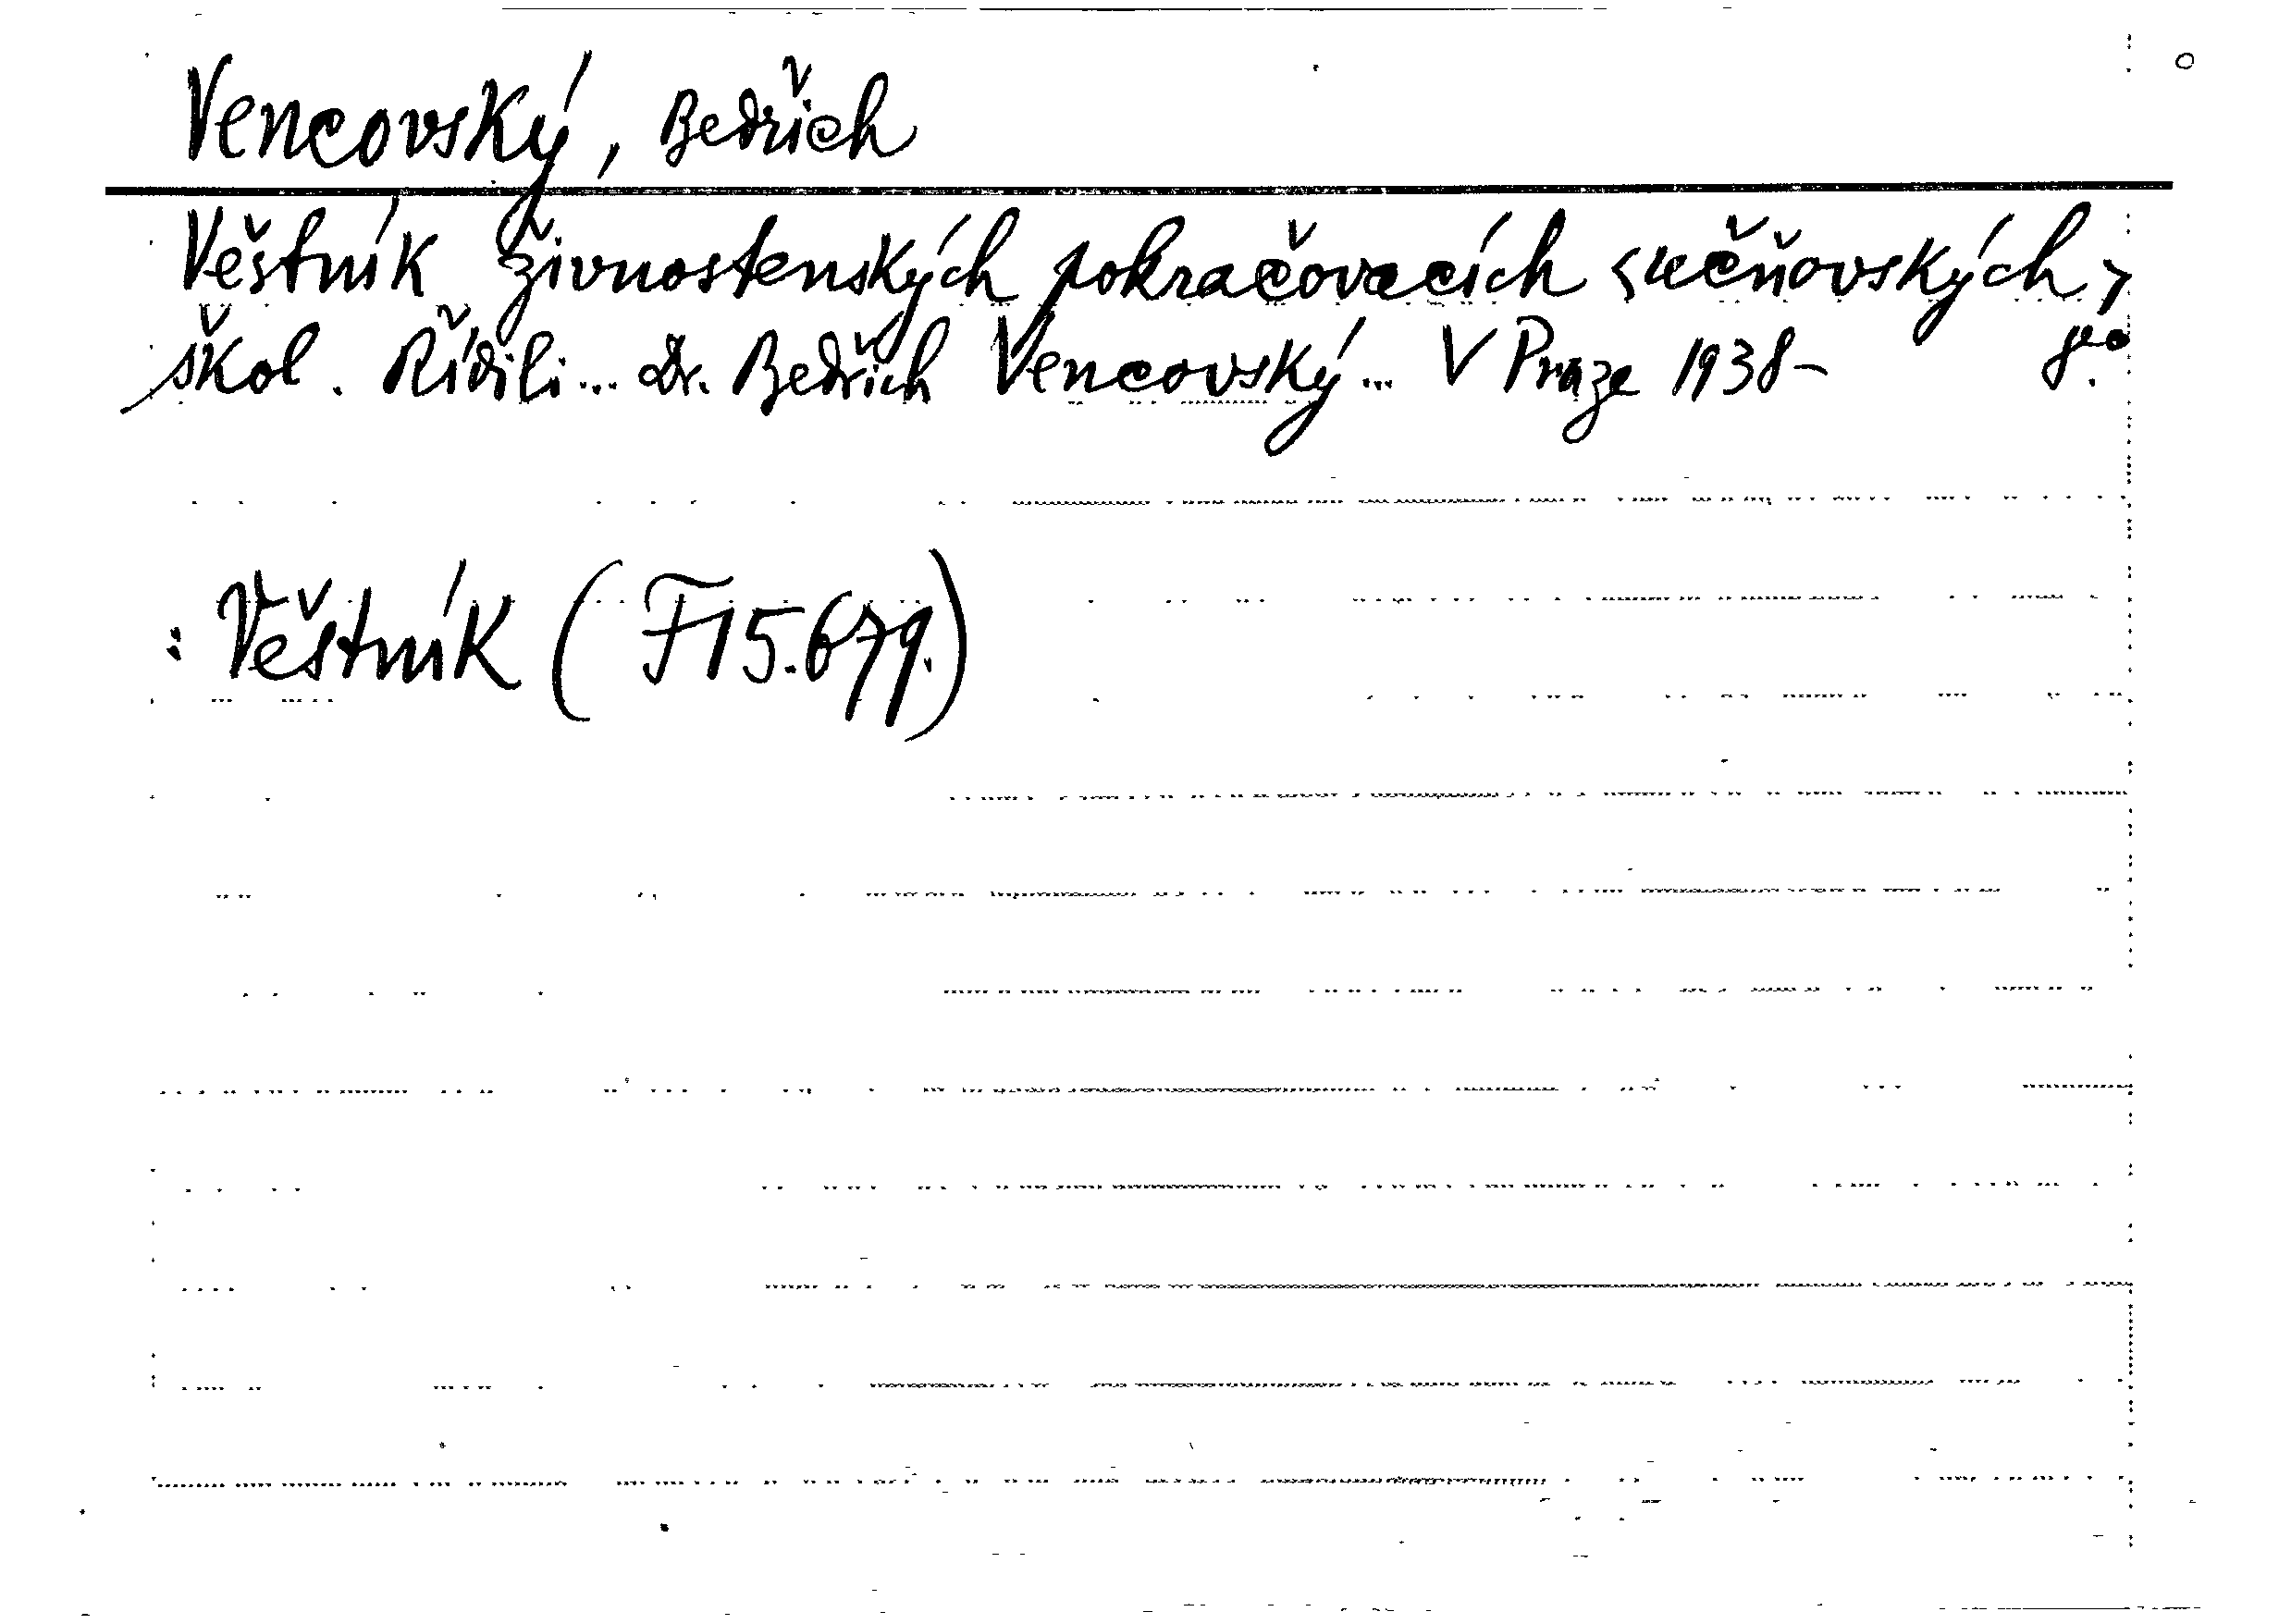 Vencovský, Bedřich
Věstník živnostenských pokračovacích <učňovských>
škol. Řídili... Dr. Bedřich Vencovský... V Praze 1938- 8°.
: Věstník (F 15.679.)